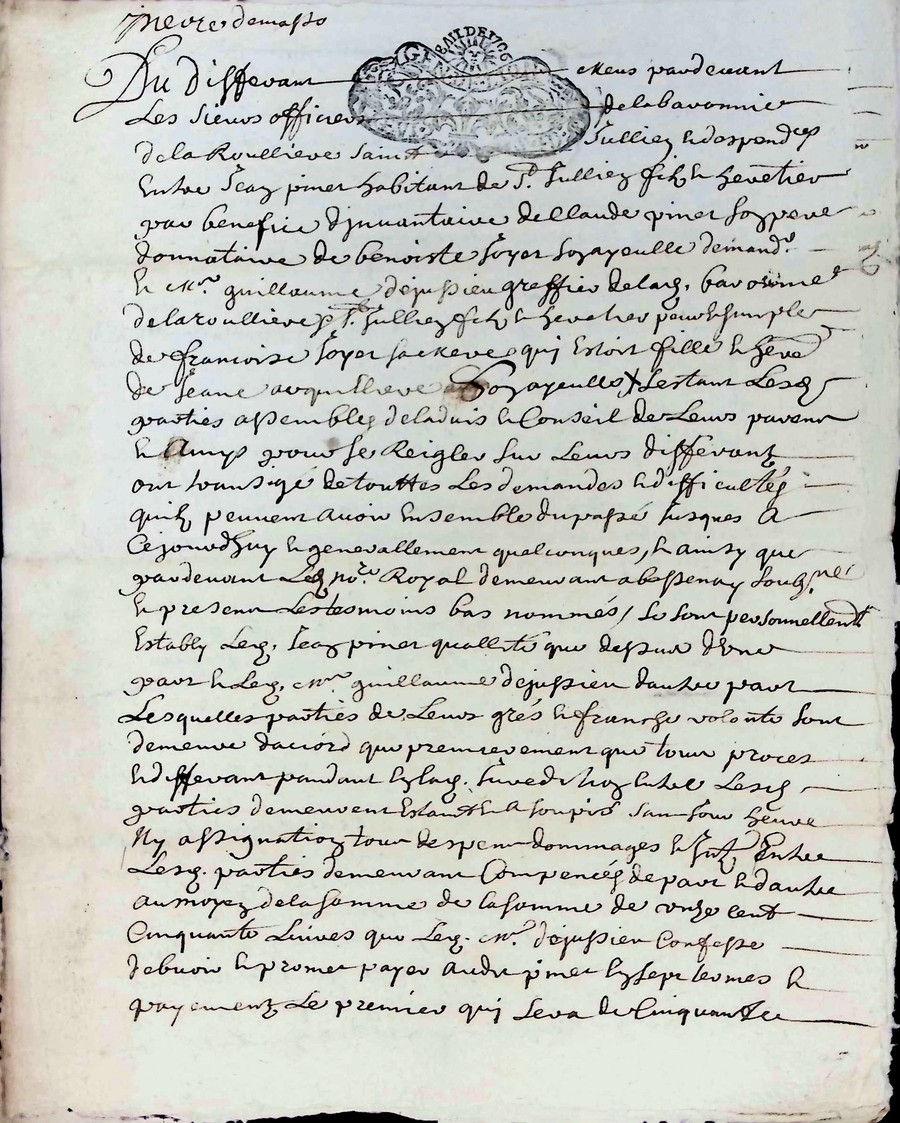 Du differant meus pardevant
Les Sieurs officiers de la baronnie
de la Roulliere Sainct Jullien & despend^ces
Entre Jean pinet habitant de S^t. Jullien filz & heretier
par benefice d'jnvantaire de Claude pinet son pere
donnataire de benoiste foyer son ayeulle demand^r.
& M^r. guillaume dejussieu greffier de lad. baronnie
de la roulliere S^t. Jullien filz & heretier pur & simple
de francoise foyer sa mere qui estoit fille & here
de Jeane Son ayeulle Lestant Lesd
parties assemblés de ladvis & Conseil de Leurs parent
& Amys pour se Reigler sur Leurs differantz
ont transigé de touttes Les demandes & difficultés
quilz peuvent avoir Ensemble du passé Jusques A
Cejourdhuy & generallement quelconques, & ainsy que
pardevant Led no^re. Royal demeurant a bessenay soubs^né
& present Les tesmoins bas nommés, Se sont personnellem^t
Estably Led. Jean pinet quallité que dessus d'Une
part & Led. M^re guillaume dejussieu dautre part
Lesquelles parties de Leurs grés & franche volonté sont
demeuré daccord que premierement que tour proces
& differant pandant En lad. Jurediction Entre Lesd
parties demeurent Estainct & Asoupis sans four heure
Ny assignation tour despens dommages & Jnt^s Entre
Lesd. parties demeurant Compencés de part & dautre
au moyen de la somme de la somme de onze cent
Cinquante Livres que Led. M^r. dejussieu Confesse
debvoir & promet payer audit pinet En sept termes &
payementz Le premier qui sera de Cinquante